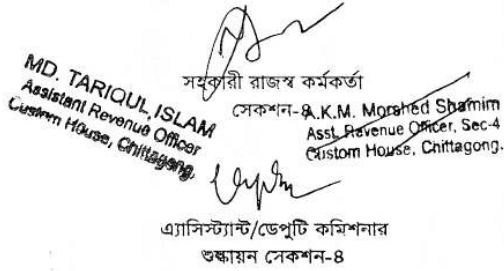 সহকারী রাজস্ব কর্মকর্তা
সেকশন-৪
MD. TARIQUL ISLAM
Assistant Revenue Officer
Custom House, Chittagong.
A.K.M. Morshed Shamim
Asst. Revenue Officer, Sec-4
Custom House, Chittagong.
এ্যাসিস্ট্যান্ট/ডেপুটি কমিশনার
শুল্কায়ন সেকশন-৪